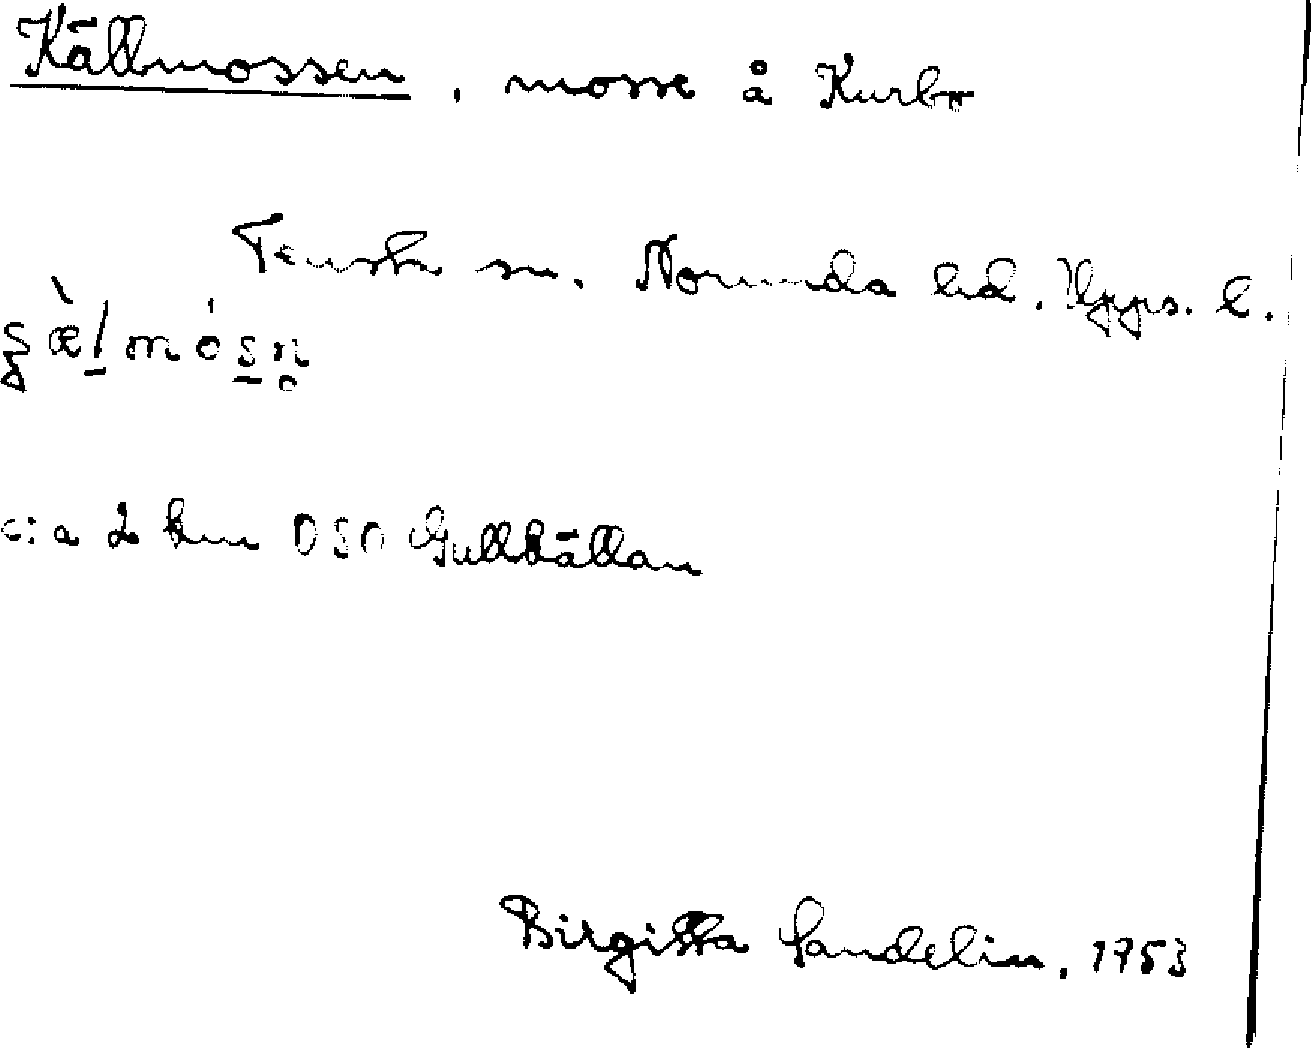 Källmossen, mosse å Kurbo
Tensta sn. Norunda hd. Upps. l.
c:a 2 km OSO Gullkällan
Birgitta Sandelin, 1953